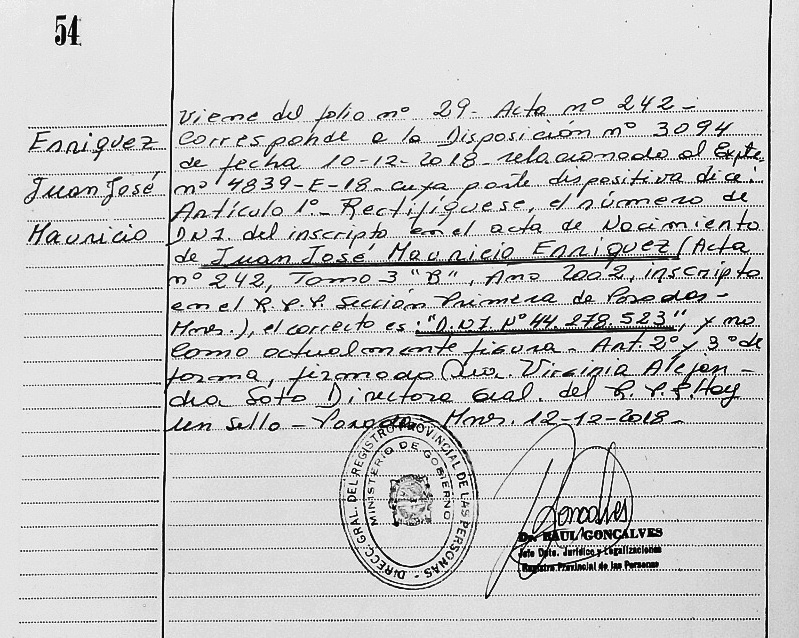 54
Enriquez
Juan José
Mauricio
Viene del folio nº 29- Acta nº 242-
Corresponde a la Disposición nº 3094
de fecha 10-12-2018- relacionado al Expte.
nº 4839-E-18- cuya parte dispositiva dice:
Artículo 1º- Rectifíquese, el número de
DNI del inscripto en el acta de Nacimiento
de Juan José Mauricio Enriquez (Acta
nº 242, Tomo 3 "B", Año 2002, inscripto
en el R.P.P. Sección Primera de Posadas-
Mnes.), el correcto es: "D.N.I. Nº 44.278.523", y no
como actualmente figura- Art. 2º y 3º de
forma, firmado Dra. Virginia Alejan-
dra Soto Directora Gral. del R.P.P. Hay
un sello- Posadas Mnes. 12-12-2018-
DIRECC. GRAL. DEL REGISTRO PROVINCIAL DE LAS PERSONAS
MINISTERIO DE GOBIERNO
Goncalves
Dr. RAUL GONCALVES
Jefe Dpto. Jurídico y Legalizaciones
Registro Provincial de las Personas